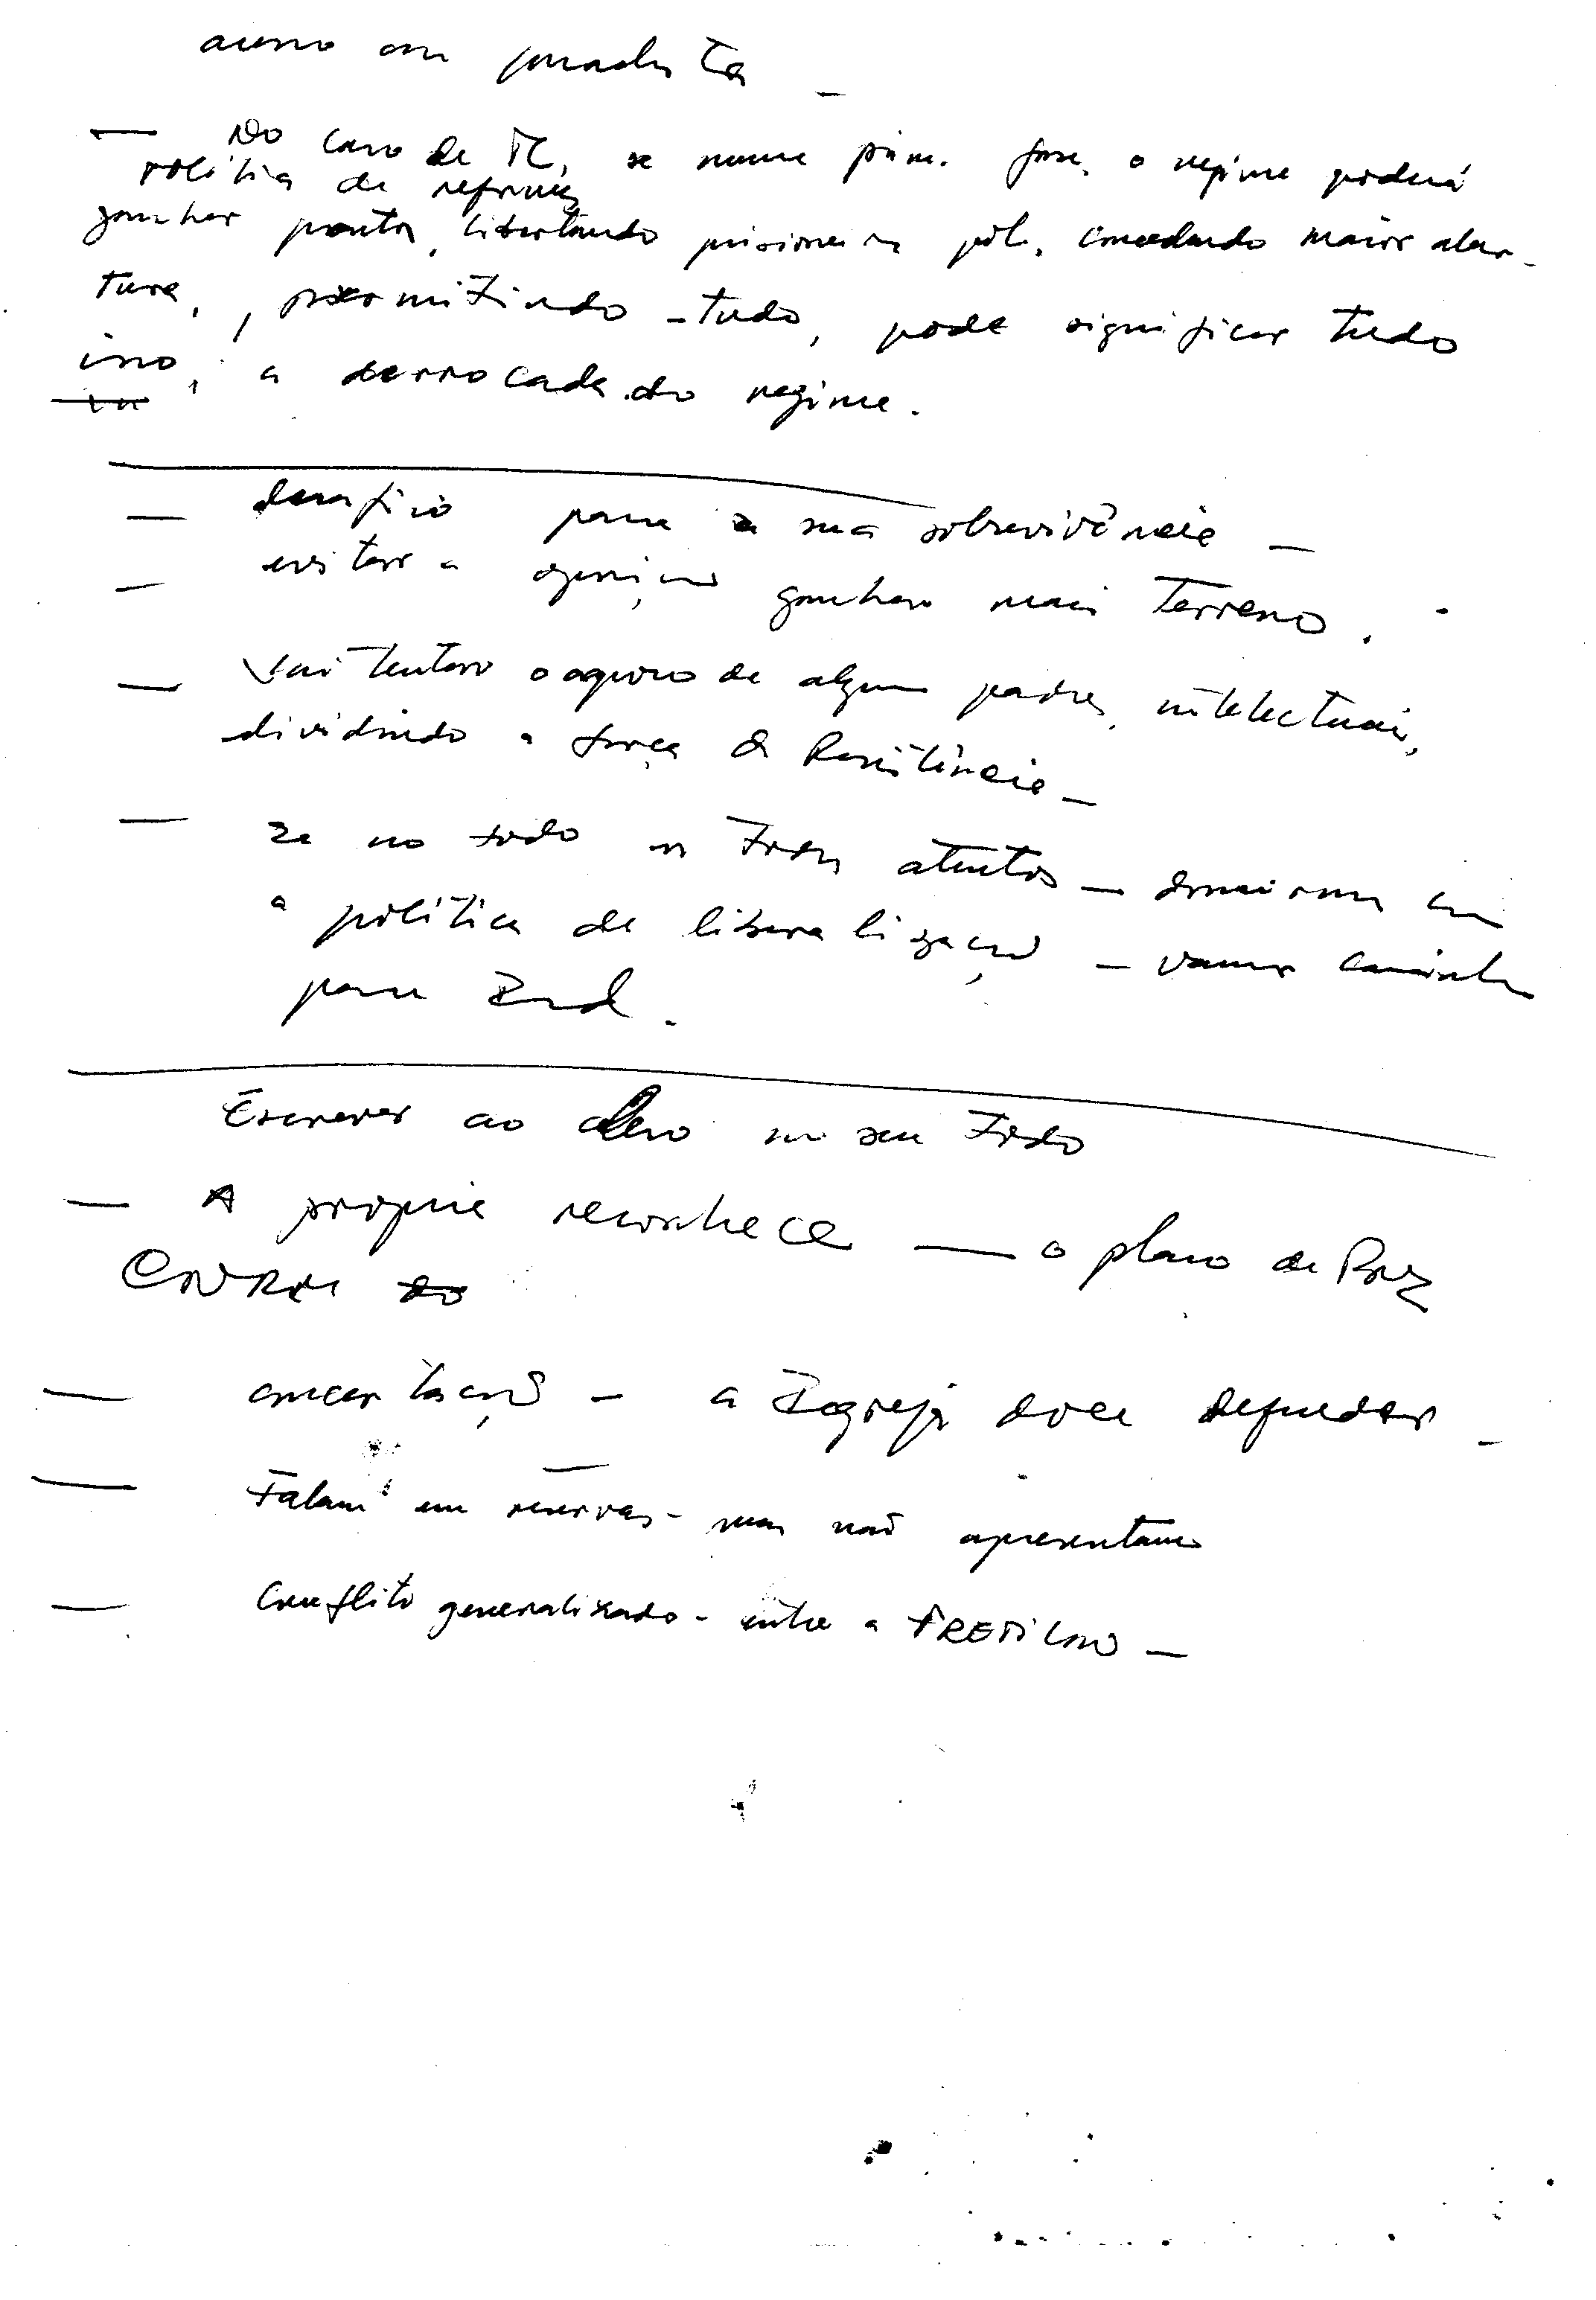 — No caso de TL, se numa prim. fase, o regime poderá
política de reformas
ganhar pontos, libertando prisioneiros pol., concedendo maior aber-
tura, , permitindo - tudo, pode significar tudo
isso, a derrocada do regime.
— desafio para a sua sobrevivência —
— evitar a oposição ganhar mais terreno.
— Vai tentar o apoio de alguns padres, intelectuais,
dividindo a força da Resistência —
— Se no todo n todos atentos —
a política de liberalização — vamos caminhar
para Ind.
Escrever ao clero no seu todo
— A própria reconhece — o plano de Paz
CNRM do
— concertação — a Igreja deve defender —
— Falam em reservas - mas não apresentam
— Conflito generalizado - entre a FRETILIN —